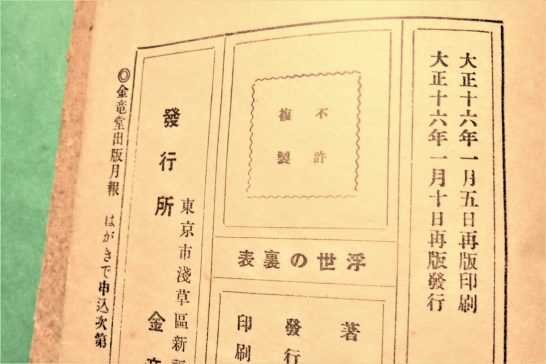 大正十六年一月五日再版印刷
大正十六年一月十日再版發行
不許
複製
浮世の裏表
著
發行
印刷
發行所
東京市淺草區新
金
◎金竜堂出版月報 はがきで申込次第